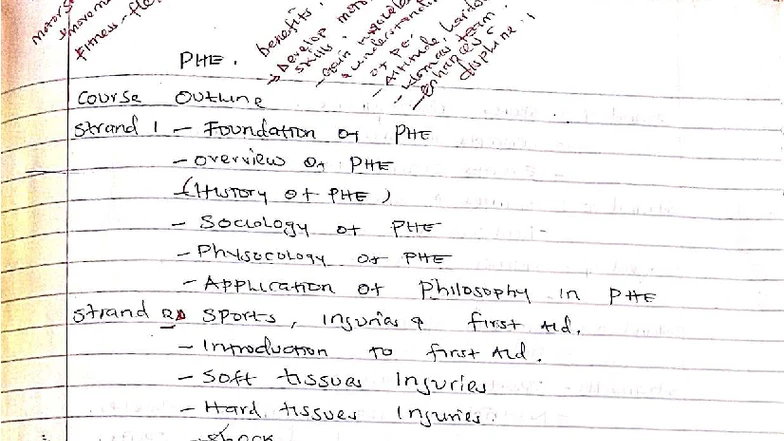 Motor s
movem
Fitness - fle
benefits,
→ Develop moto
skills,
- Gain knowled
& understandin
of PE.
- Attitude,
- team
- Enhances
PHE.
Course Outline
Strand 1 - Foundation of PHE
- Overview of PHE
(History of PHE)
- Sociology of PHE
- Physocology of PHE
- Application of Philosophy in PHE
Strand 2 Sports, Injurias & First Aid.
- Introduction to first Aid.
- Soft tissues Injuries
- Hard tissues Injuries.
- Shock